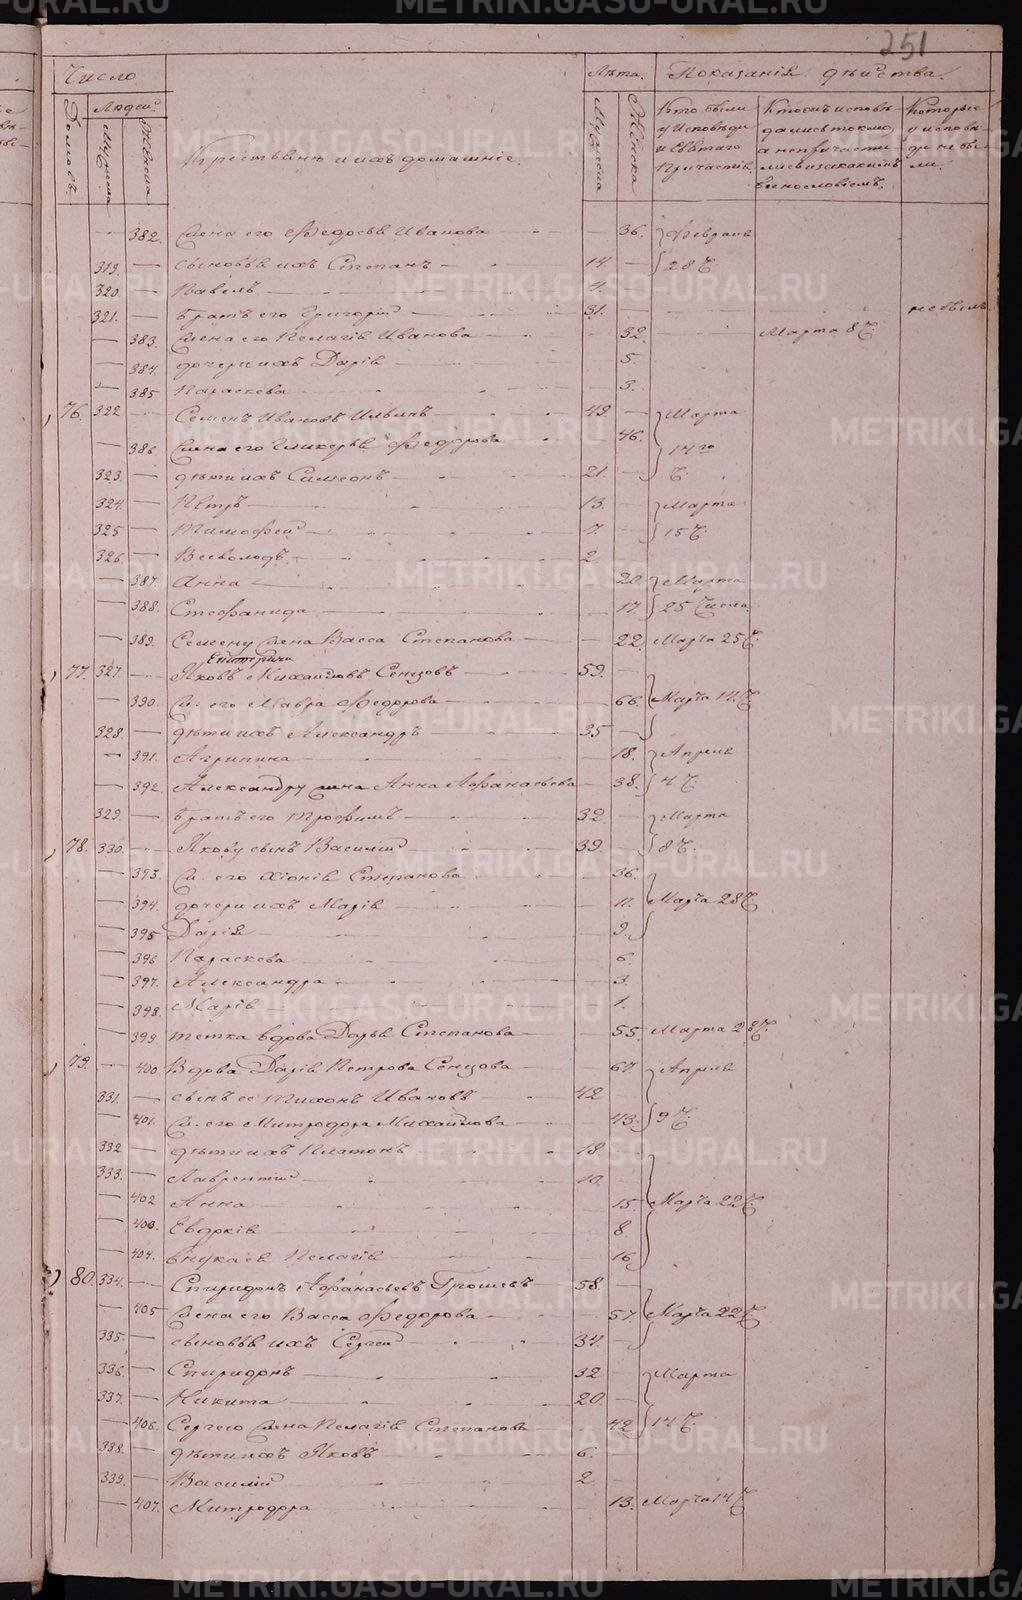 251
Число
Лѣта.
Показанія дѣйства.
Домовъ.
Людей
Мужеска
Женска
Крестьяне и ихъ домашніе.
Мужеска
Женска
Кто были у Исповѣди и Святаго Причастія.
Кто исповѣдались токмо, а непричастились и за какимъ винословіемъ.
Которые у исповѣди не были.
382. Жена его Федосья Иванова 36. Февраля
319. сыновья ихъ Степанъ 14. 28 Ч.
320. Павелъ 4.
321. Братъ его Григорій 31. не былъ
383. Жена его Пелагія Иванова 32. Марта 8 Ч.
384. дочери ихъ Дарія 5.
385 Параскева 3.
76. 322 Семенъ Ивановъ Ильинъ 49 Марта
386. Жена его Гликерья Федорова 46. 14го
323. дѣти ихъ Симеонъ 21. Ч.
324. Петръ 13. Марта
325 Тимофей 7. 15 Ч.
326. Всеволодъ 2
387. Анна 20. Марта
388. Стефанида 17. 25 Числа
389. Семену жена Васса Степанова 22. Марта 25 Ч.
77. 327. Яковъ Михайловъ Сенцовъ 59.
390. Ж. его Мавра Федорова 66. Марта 14 Ч.
328. дѣти ихъ Александръ 35
391. Агрипина 18. Апрѣля
392. Александру жена Анна Афанасьева 38. 4 Ч.
329. Братъ его Трофимъ 32. Марта
78. 330. Якову сынъ Василій 39 8 Ч.
393. Ж. его Хіонія Степанова 36.
394. дочери ихъ Марія 11. Марта 28 Ч.
395 Дарія 9.
396 Параскева 6.
397. Александра 3.
398. Марія 1.
399 тетка вдова Дарья Степанова 55. Марта 28 Ч.
79. 400 Вдова Дарія Петрова Сенцова 67. Апрѣля
331. сынъ ее Тихонъ Ивановъ 42
401. Ж. его Митродора Михайлова 43. 9 Ч.
332 дѣти ихъ Платонъ 18.
333. Лаврентій 10.
402 Анна 15. Марта 22 Ч.
403. Евдокія 8
404. внука ея Пелагія 16.
80. 334. Спиридонъ Афанасьевъ Грошевъ 58.
405 Жена его Васса Федорова 57. Марта 22 Ч.
335. сыновья ихъ Сергей 34.
336. Спиридонъ 32 Марта
337. Никита 20.
406. Сергею жена Пелагія Степанова 42 14 Ч.
338. дѣти ихъ Яковъ 6.
339. Василій 2
407. Митродора 13. Марта 14 Ч.
METRIKI.GASO-URAL.RU